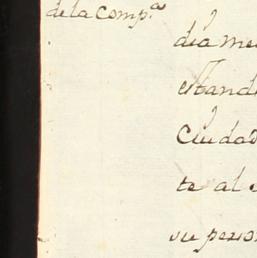 de la Comp.ª
dia me
estand
Ciudad
te al
su perso